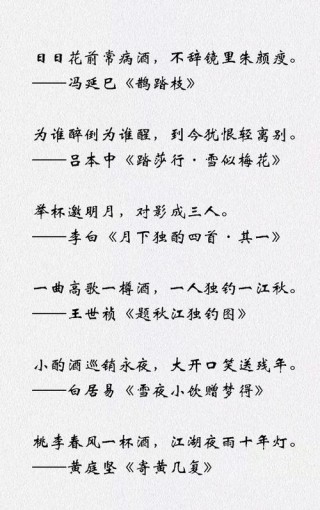 日日花前常病酒，不辞镜里朱颜瘦。
——冯延巳《鹊踏枝》
为谁醉倒为谁醒，到今犹恨轻离别。
——吕本中《踏莎行·雪似梅花》
举杯邀明月，对影成三人。
——李白《月下独酌四首·其一》
一曲高歌一樽酒，一人独钓一江秋。
——王世祯《题秋江独钓图》
小酌酒巡销永夜，大开口笑送残年。
——白居易《雪夜小饮赠梦得》
桃李春风一杯酒，江湖夜雨十年灯。
——黄庭坚《寄黄几复》